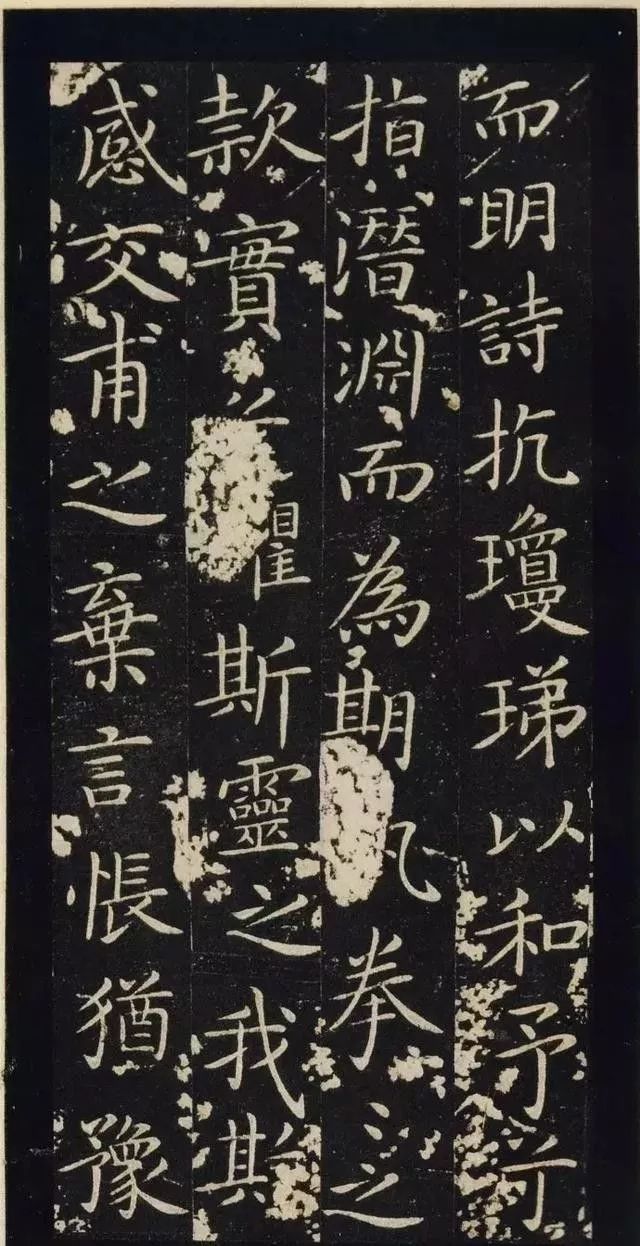 而明詩抗瓊珶以和予兮
指潛淵而為期拳〻之
款實懼斯靈之我
感交甫之棄言悵猶豫